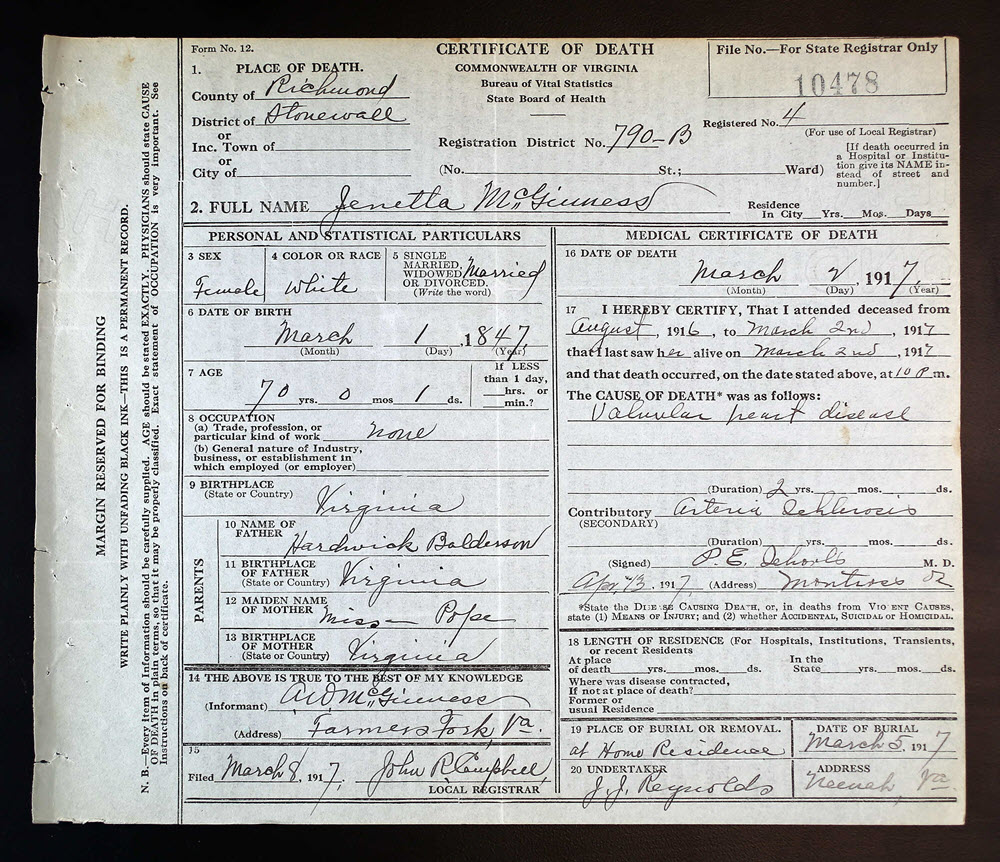 Form No. 12.
CERTIFICATE OF DEATH
COMMONWEALTH OF VIRGINIA
Bureau of Vital Statistics
State Board of Health
File No.—For State Registrar Only
10478
1. PLACE OF DEATH.
County of Richmond
District of Stonewall
or
Inc. Town of
or
City of
Registration District No. 790-B
Registered No. 4
(For use of Local Registrar)
(No. St.; Ward)
[If death occurred in
a Hospital or Institu-
tion give its NAME in-
stead of street and
number.]
2. FULL NAME Jenetta McGinness
Residence
In City Yrs. Mos. Days
PERSONAL AND STATISTICAL PARTICULARS
3 SEX
Female
4 COLOR OR RACE
White
5 SINGLE
MARRIED,
WIDOWED
OR DIVORCED.
(Write the word)
Married
6 DATE OF BIRTH
March 1, 1847
(Month) (Day) (Year)
7 AGE
70 yrs. 0 mos 1 ds.
If LESS
than 1 day,
hrs. or
min.?
8 OCCUPATION
(a) Trade, profession, or
particular kind of work none
(b) General nature of Industry,
business, or establishment in
which employed (or employer)
9 BIRTHPLACE
(State or Country)
Virginia
PARENTS
10 NAME OF
FATHER
Hardwick Balderson
11 BIRTHPLACE
OF FATHER
(State or Country)
Virginia
12 MAIDEN NAME
OF MOTHER
Miss Pope
13 BIRTHPLACE
OF MOTHER
(State or Country)
Virginia
14 THE ABOVE IS TRUE TO THE BEST OF MY KNOWLEDGE
(Informant) McGinness
(Address) Farmers Fork, Va.
15
Filed March 8, 1917, John R Campbell,
LOCAL REGISTRAR
MEDICAL CERTIFICATE OF DEATH
16 DATE OF DEATH
March 2, 1917
(Month) (Day) (Year)
17 I HEREBY CERTIFY, That I attended deceased from
August, 1916, to March 2nd, 1917
that I last saw her alive on March 2nd, 1917
and that death occurred, on the date stated above, at 10 P m.
The CAUSE OF DEATH* was as follows:
Valvular heart disease
(Duration) 2 yrs. mos. ds.
Contributory Arteria Schlerosis
(SECONDARY)
(Duration) yrs. mos. ds.
(Signed) P. E. M. D.
1917, (Address) Montross Va
*State the DISEASE CAUSING DEATH, or, in deaths from VIOLENT CAUSES,
state (1) MEANS OF INJURY; and (2) whether ACCIDENTAL, SUICIDAL or HOMICIDAL.
18 LENGTH OF RESIDENCE (For Hospitals, Institutions, Transients,
or recent Residents
At place
of death yrs. mos. ds.
In the
State yrs. mos. ds.
Where was disease contracted,
If not at place of death?
Former or
usual Residence
19 PLACE OF BURIAL OR REMOVAL.
at Home Residence
DATE OF BURIAL
March 5, 1917
20 UNDERTAKER
J. J. Reynolds
ADDRESS
Neenah, Va.
MARGIN RESERVED FOR BINDING
WRITE PLAINLY WITH UNFADING BLACK INK—THIS IS A PERMANENT RECORD.
N. B.—Every item of information should be carefully supplied. AGE should be stated EXACTLY. PHYSICIANS should state CAUSE
OF DEATH in plain terms, so that it may be properly classified. Exact statement of OCCUPATION is very important. See
instructions on back of certificate.